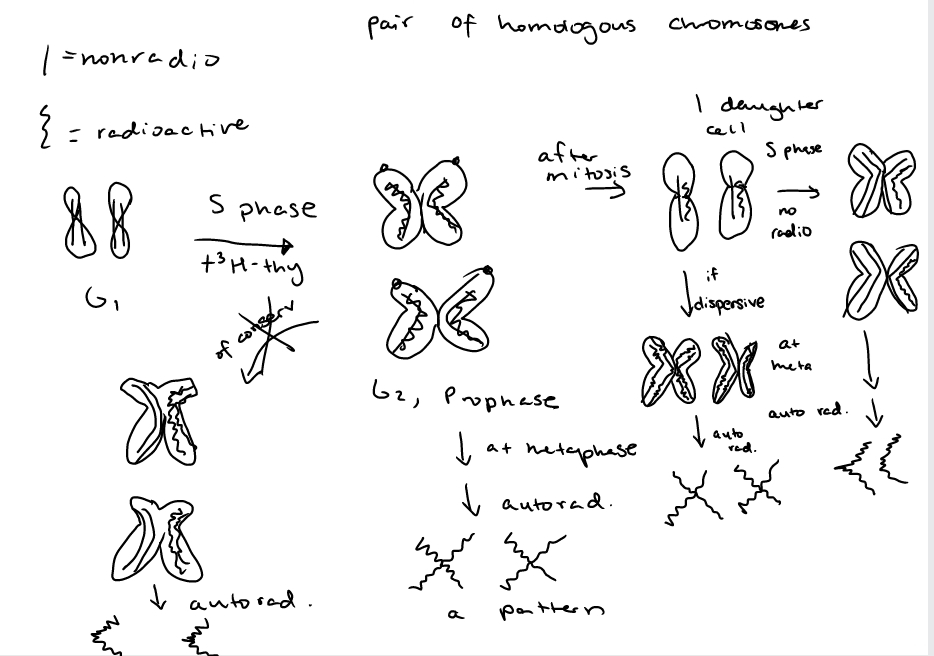 pair of homologous chromosomes
| = nonradio
{ = radioactive
1 daughter
cell
after
mitosis
S phase
no
radio
S phase
+³H-thy
G1
of conserv
if
dispersive
at
meta
auto rad.
auto
rad.
G2, Prophase
at metaphase
autorad.
a pattern
autorad.